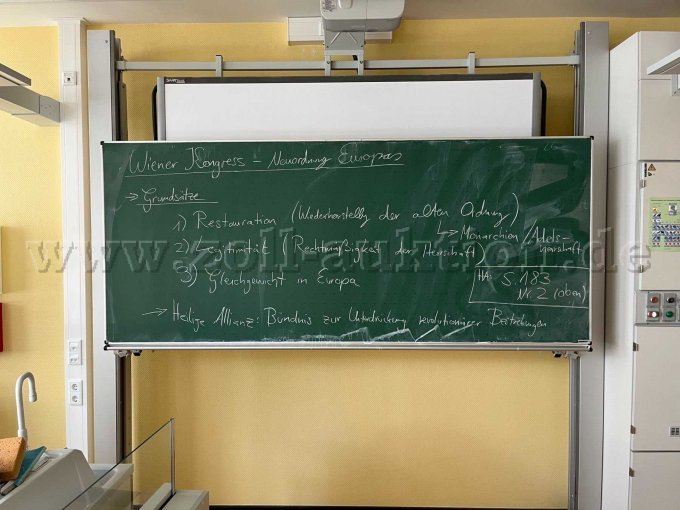 Wiener Kongress - Neuordnung Europas
→ Grundsätze
1) Restauration (Wiederherstellg der alten Ordnung)
↳ Monarchien / Adels-
herrschaft
2) Legitimität (Rechtmäßigkeit der Herrschaft)
3) Gleichgewicht in Europa
HA: S. 183
Nr. 2 (oben)
→ Heilige Allianz: Bündnis zur Unterdrückung revolutionärer Bestrebungen
www.zoll-auktion.de